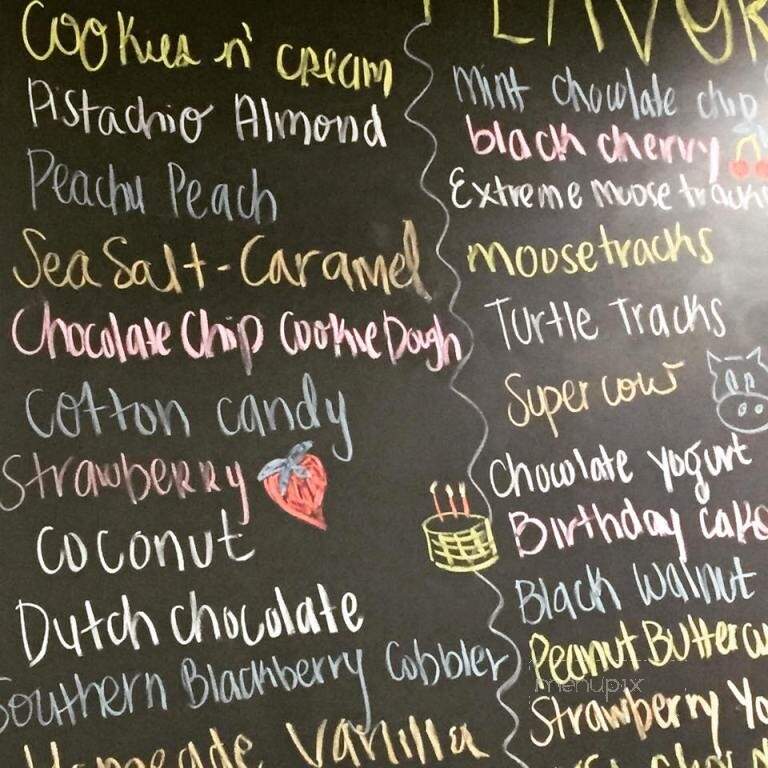 Cookies n' cream
Pistachio Almond
Peachy Peach
Sea Salt-Caramel
Chocolate Chip Cookie Dough
Cotton candy
Strawberry
Coconut
Dutch chocolate
Southern Blackberry Cobbler
Homemade Vanilla
Mint chocolate chip
black cherry
Extreme moose tracks
moosetracks
Turtle Tracks
Super cow
Chocolate yogurt
Birthday cake
Black Walnut
Peanut Butter
menupix
Strawberry Yo